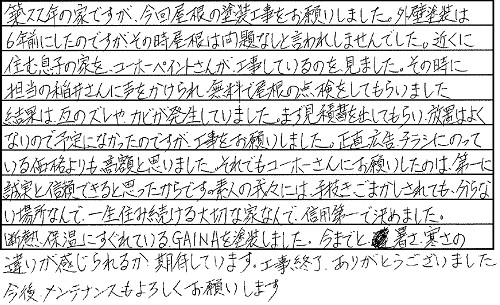 築22年の家ですが、今回屋根の塗装工事をお願いしました。外壁塗装は
6年前にしたのですがその時屋根は問題なしと言われしませんでした。近くに
住む息子の家を、コーホーペイントさんが工事しているのを見ました。その時に
担当の稲井さんに声をかけられ無料で屋根の点検をしてもらいました
結果は瓦のズレやカビが発生していました。まず見積書を出してもらい、放置はよく
ないので予定になかったのですが、工事をお願いしました。正直、広告、チラシにのって
いる価格よりも高額と思いました。それでもコーホーさんにお願いしたのは、第一に
誠実と信頼できると思ったからです。素人の我々には、手抜きごまかしされても、分らな
い場所なんで、一生住み続ける大切な家なんで、信用第一で決めました。
断熱、保温にすぐれているGAINAを塗装しました。今までと暑さ、寒さの
違いが感じられるか期待しています。工事終了、ありがとうございました
今後、メンテナンスもよろしくお願いします